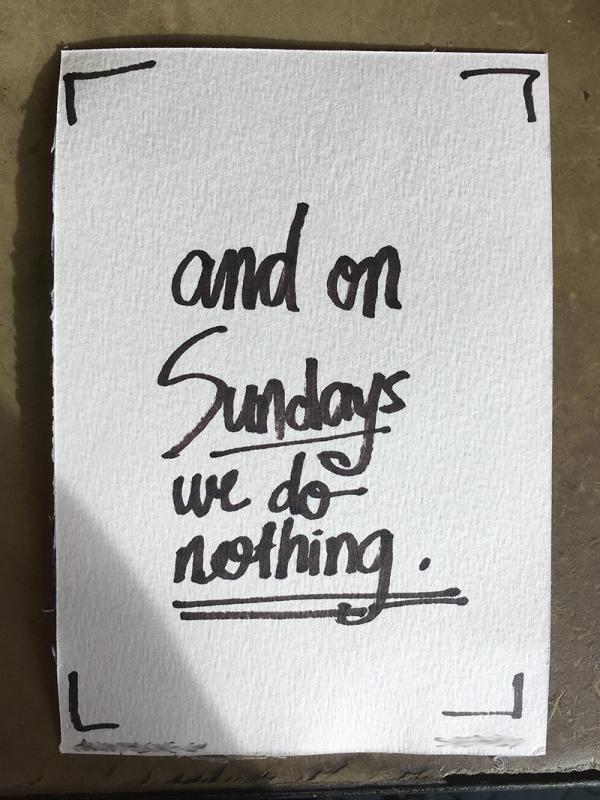 and on
Sundays
we do
nothing.